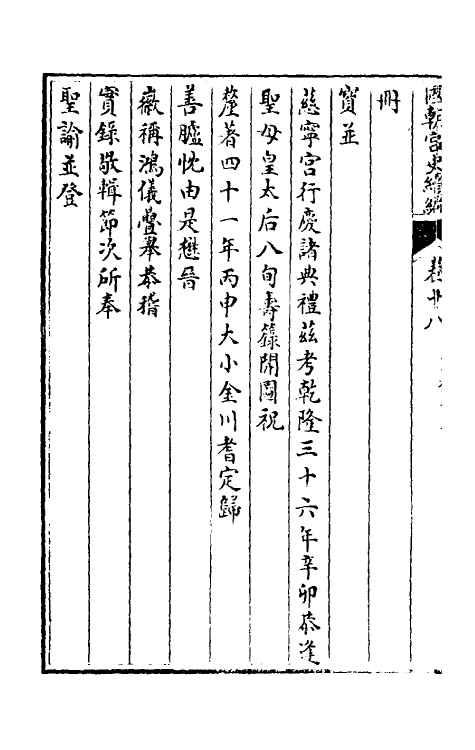 國朝宮史續編 卷卅八
冊
寶並
慈寧宮行慶諸典禮茲考乾隆三十六年辛卯恭逢
聖母皇太后八旬壽籙開圖祝
釐著四十一年丙申大小金川耆定歸
善臚忱由是懋晉
徽稱鴻儀疊舉恭稽
實錄敬輯節次所奉
聖諭並登